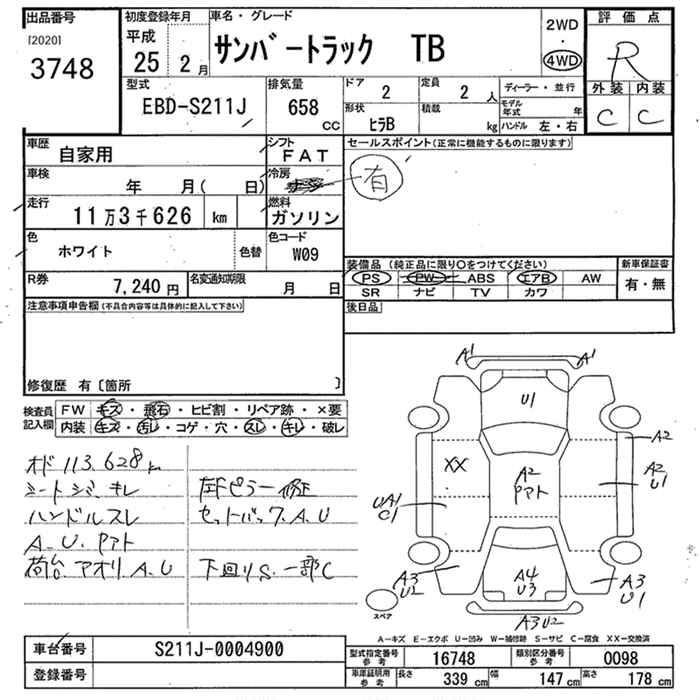 出品番号
[2020]
3748
初度登録年月
平成
25 2 月
車名・グレード
サンバートラック TB
2WD
・
4WD
評価点
R
外装 内装
C C
型式
EBD-S211J
排気量
658
CC
ドア
2
定員
2 人
形状
ヒラB
積載
kg
ディーラー・並行
モデル年式 年
ハンドル 左・右
車歴
自家用
シフト
FAT
車検
年 月( 日)
冷房
有
走行
11万3千626 km
燃料
ガソリン
色
ホワイト
色替
色コード
W09
R券
7,240 円
名変通知期限
月 日
セールスポイント(正常に機能するものに限ります)
装備品 (純正品に限り○をつけてください)
PS PW ABS エアB AW
SR ナビ TV カワ
新車保証書
有・無
後日品
注意事項申告欄(不具合内容等は具体的に記入して下さい)
修復歴 有〔箇所 〕
検査員記入欄
FW キズ・飛石・ヒビ割・リペア跡・×要
内装 キズ・汚レ・コゲ・穴・スレ・キレ・破レ
オド 113.628k
シートシミ、キレ
ハンドルスレ
A.U.Pアト
荷台、アオリ.A.U
左Fピラー修正
セットバック.A.U
下回りS.一部C
A1 A1
U1
A2
XX
A2
Pアト
A2
U1
UA1
C1
A3
U2
A4
U3
A3
U1
A3U2
スペア
A―キズ E―エクボ U―凹み W―補修跡 S―サビ C―腐食 XX―交換済
車台番号
S211J-0004900
登録番号
型式指定番号
参考
16748
類別区分番号
参考
0098
車庫証明用
参考
長さ 339 cm 幅 147 cm 高さ 178 cm